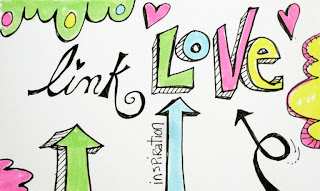 link LOVE
inspiration